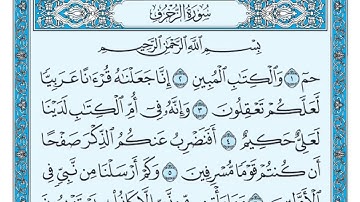 سُورَةُ الزُّخْرُفِ
بِسْمِ اللَّهِ الرَّحْمَٰنِ الرَّحِيمِ
حمٓ ١ وَالْكِتَابِ الْمُبِينِ ٢ إِنَّا جَعَلْنَاهُ قُرْءَانًا عَرَبِيًّا
لَّعَلَّكُمْ تَعْقِلُونَ ٣ وَإِنَّهُ فِي أُمِّ الْكِتَابِ لَدَيْنَا
لَعَلِيٌّ حَكِيمٌ ٤ أَفَنَضْرِبُ عَنكُمُ الذِّكْرَ صَفْحًا
أَن كُنتُمْ قَوْمًا مُّسْرِفِينَ ٥ وَكَمْ أَرْسَلْنَا مِن نَّبِيٍّ فِي